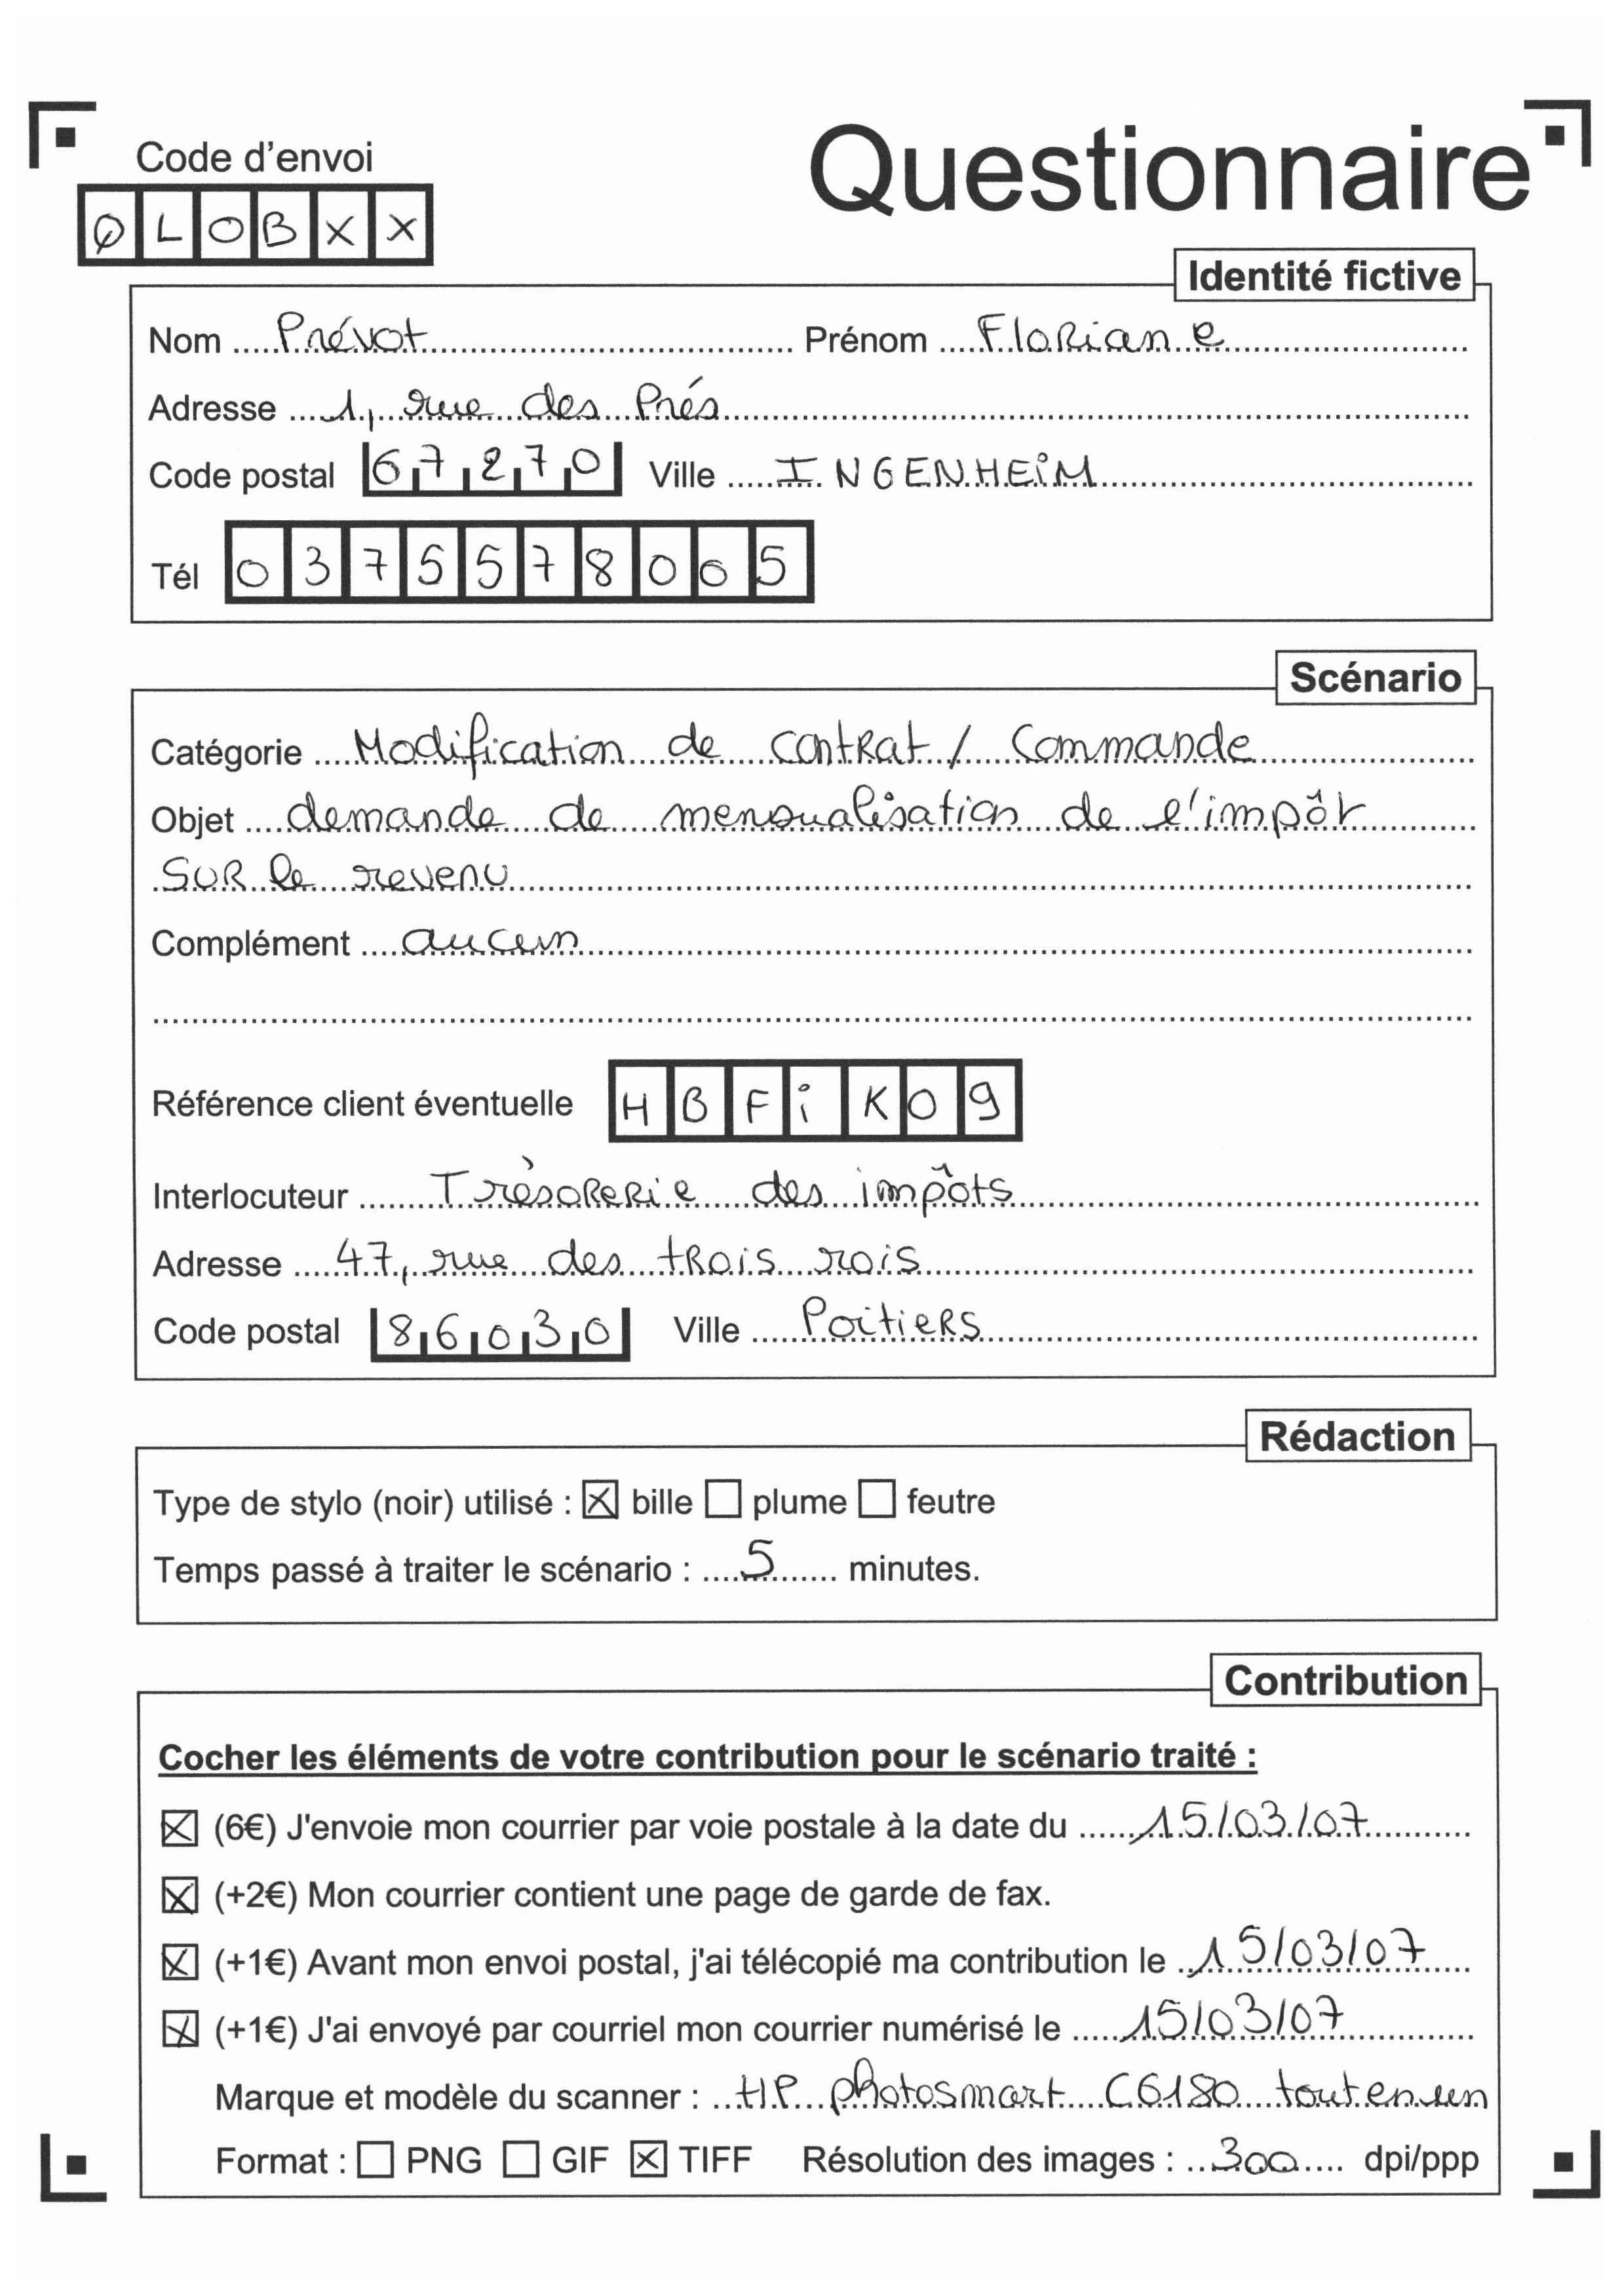 Code d'envoi
Questionnaire
Ø L O B X X
Identité fictive
Nom Prévot Prénom Floriane
Adresse 1, rue des Prés
Code postal 67270 Ville INGENHEiM
Tél 0375578005
Scénario
Catégorie Modification de contrat / Commande
Objet demande de mensualisation de l'impôt
sur le revenu
Complément aucun
Référence client éventuelle HBFiK09
Interlocuteur Trèsorerie des impôts
Adresse 47, rue des trois rois
Code postal 86030 Ville Poitiers
Rédaction
Type de stylo (noir) utilisé : ☒ bille ☐ plume ☐ feutre
Temps passé à traiter le scénario : 5 minutes.
Contribution
Cocher les éléments de votre contribution pour le scénario traité :
☒ (6€) J'envoie mon courrier par voie postale à la date du 15/03/07
☒ (+2€) Mon courrier contient une page de garde de fax.
☒ (+1€) Avant mon envoi postal, j'ai télécopié ma contribution le 15/03/07
☒ (+1€) J'ai envoyé par courriel mon courrier numérisé le 15/03/07
Marque et modèle du scanner : HP photosmart C6180 tout en un
Format : ☐ PNG ☐ GIF ☒ TIFF Résolution des images : 300 dpi/ppp